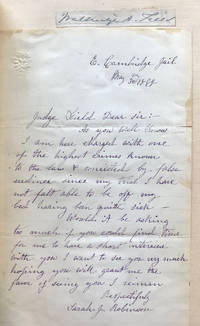 Walbridge A. Field
E. Cambridge Jail
May 3d 1888
Judge Field Dear sir:-
As you well know
I am here charged with one
of the highest crimes known
to the law & convicted by false
evidence since my trial I have
not felt able to be off my
bed having been quite sick
Would it be asking
too much if you could find time
for me to have a short interview
with you I want to see you very much
hoping you will grant me the
favor of seeing you I remain
Respectfully
Sarah J. Robinson